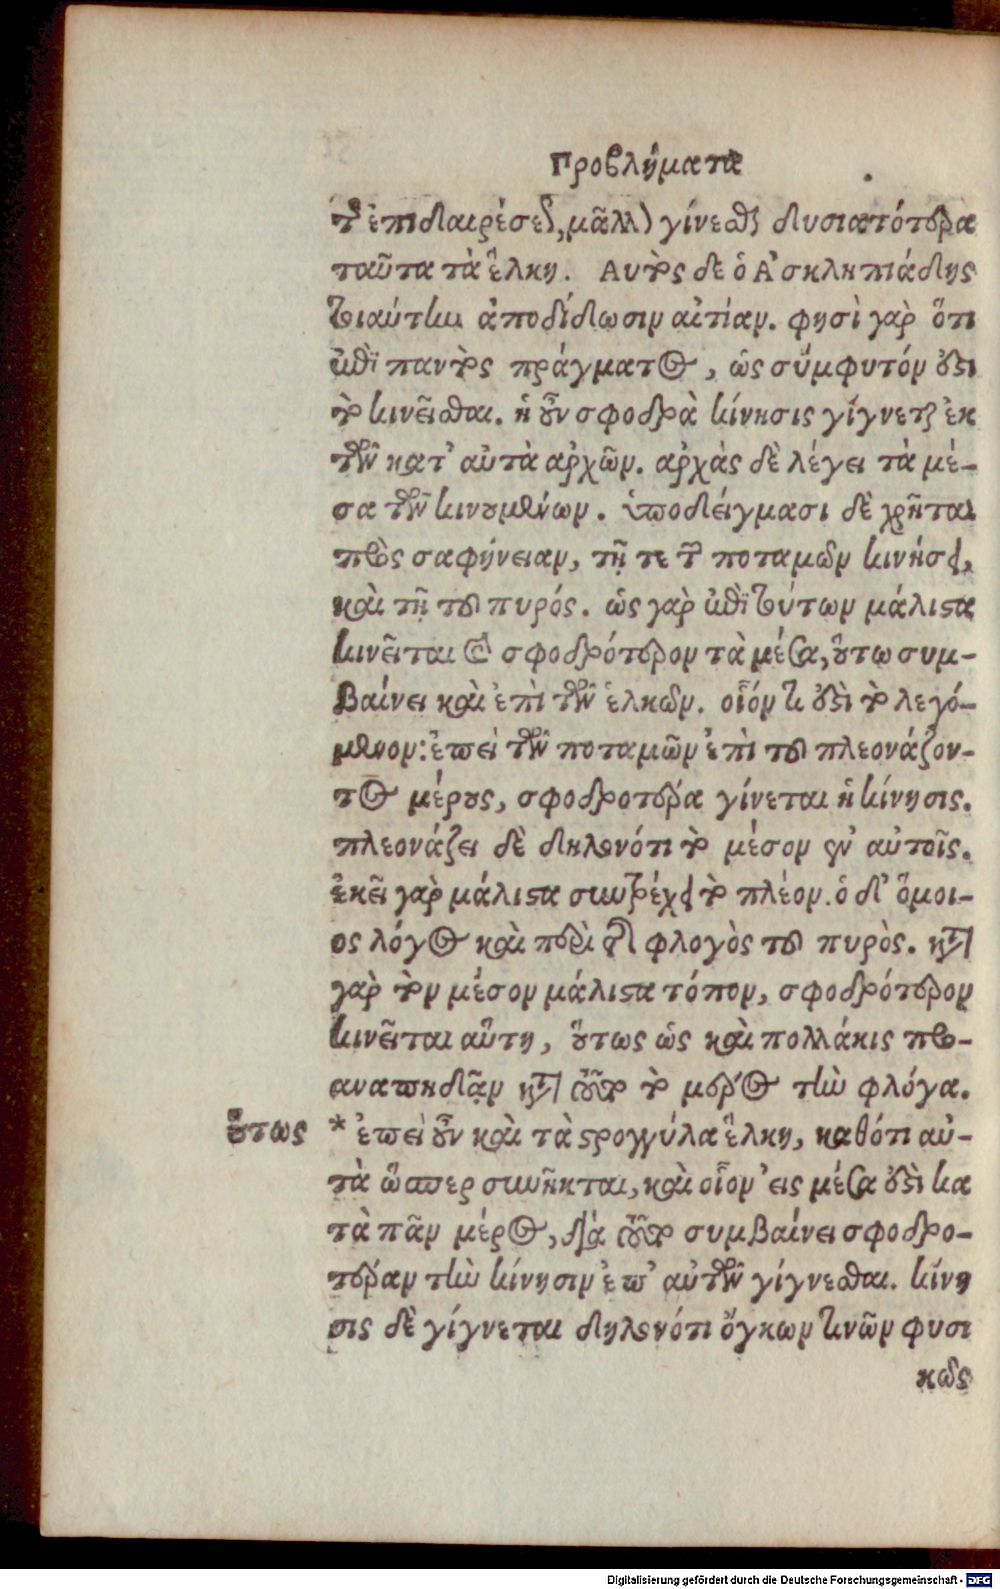 Προβλήματα
τῆ ἐπιδιαιρέσει, μᾶλλον γίνεσθαι δυσιατότερα
ταῦτα τὰ ἕλκη. Αὐτὸς δὲ ὁ Ἀσκληπιάδης
τοιαύτην ἀποδίδωσιν αἰτίαν. φησὶ γὰρ ὅτι
μέσῳ παντὸς πράγματος, ὡς σύμφυτόν ἐστι
τὸ κινεῖσθαι. ἡ οὖν σφοδρὰ κίνησις γίγνεται ἐκ
τῶν κατ' αὐτὰ ἀρχῶν. ἀρχὰς δὲ λέγει τὰ μέ-
σα τῶν κινουμένων. ὑποδείγμασι δὲ χρῆται
πρὸς σαφήνειαν, τῇ τε τῶν ποταμῶν κινήσει,
καὶ τῇ τοῦ πυρός. ὡς γὰρ ἐπὶ τούτων μάλιστα
κινεῖται καὶ σφοδρότερον τὰ μέσα, οὕτω συμ-
βαίνει καὶ ἐπὶ τῶν ἑλκῶν. οἷόν τι ἐστὶ τὸ λεγό-
μενον: ἐπεὶ τῶν ποταμῶν ἐπὶ τοῦ πλεονάζον-
τος μέρους, σφοδροτέρα γίνεται ἡ κίνησις.
πλεονάζει δὲ δηλονότι τὸ μέσον ἐν αὐτοῖς.
ἐκεῖ γὰρ μάλιστα συντρέχει τὸ πλέον. ὁ δ' ὅμοι-
ος λόγος καὶ περὶ τῆς φλογὸς τοῦ πυρὸς. κατὰ
γὰρ τὸν μέσον μάλιστα τόπον, σφοδρότερον
κινεῖται αὕτη, οὕτως ὡς καὶ πολλάκις προ-
αναπηδᾷν κατὰ τοῦτο τὸ μέρος τὴν φλόγα.
οὕτως * ἐπεὶ οὖν καὶ τὰ στρογγύλα ἕλκη, καθότι αὐ-
τὰ ὥσπερ συνῆκται, καὶ οἷον εἰς μέσα ἐστὶ κα
τὰ πᾶν μέρος, διὰ τοῦτο συμβαίνει σφοδρο-
τέραν τὴν κίνησιν ἐπ' αὐτῶν γίγνεσθαι. κίνη
σις δὲ γίγνεται δηλονότι ὄγκων τινῶν φυσι
κῶς
Digitalisierung gefördert durch die Deutsche Forschungsgemeinschaft - DFG